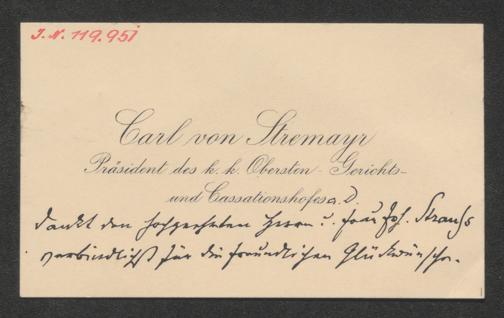 J.N. 119.951
Carl von Stremayr
Präsident des k. k. Obersten Gerichts-
und Cassationshofes a. D.
dankt den hochgeehrten Herrn u. Frau Joh. Strauss
verbindlichst für die freundlichen Glückwünsche.